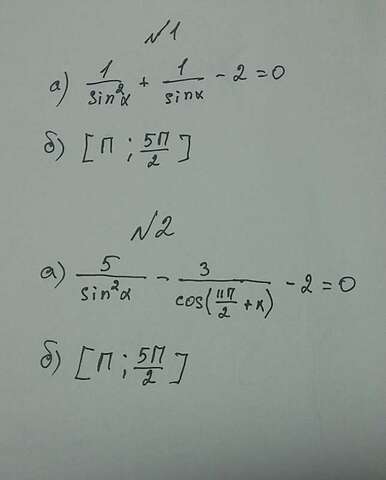 №1
а) 1/sin²α + 1/sinα - 2 = 0
б) [π ; 5π/2]
№2
а) 5/sin²α - 3/cos(11π/2 + x) - 2 = 0
б) [π ; 5π/2]